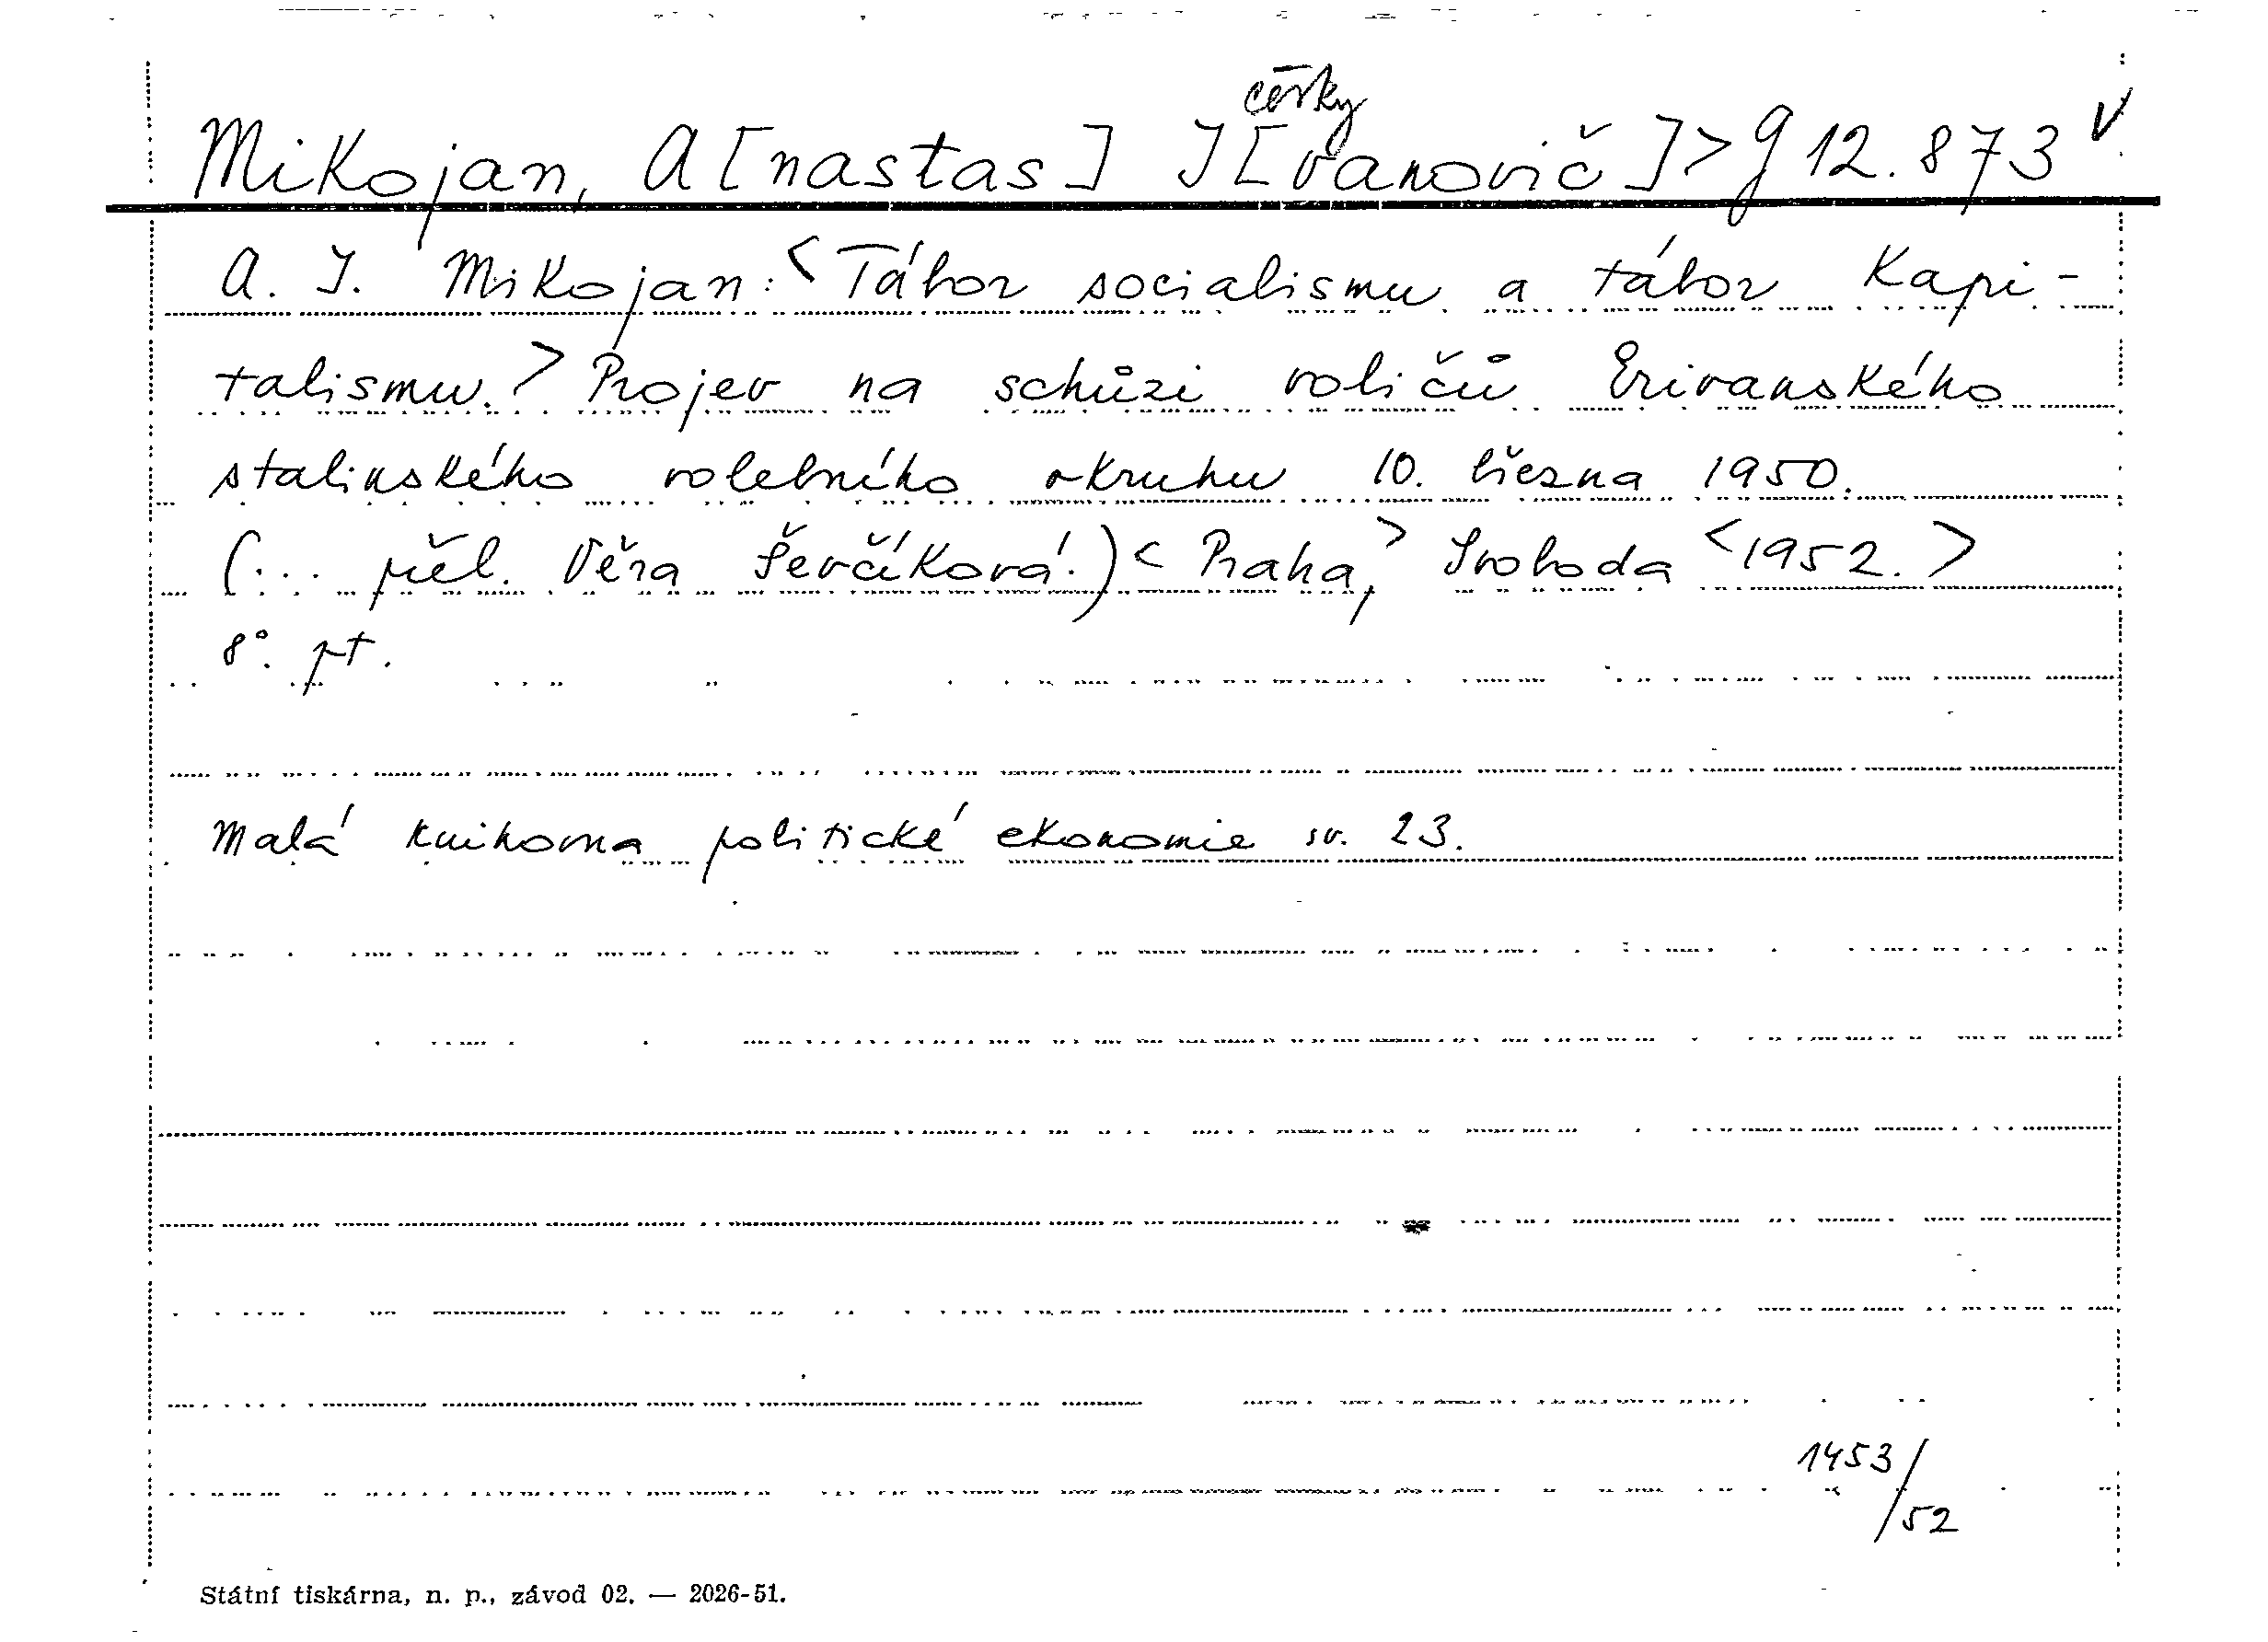 česky
Mikojan, A[nastas] I[vanovič]> g 12.873 v
A. I. Mikojan: <Tábor socialismu a tábor kapi-
talismu.> Projev na schůzi voličů Erivanského
stalinského volebního okruhu 10. března 1950.
(... přel. Věra Ševčíková.) <Praha,> Svoboda <1952.>
8°. pt.
Malá knihovna politické ekonomie sv. 23.
1453/52
Státní tiskárna, n. p., závod 02. — 2026-51.